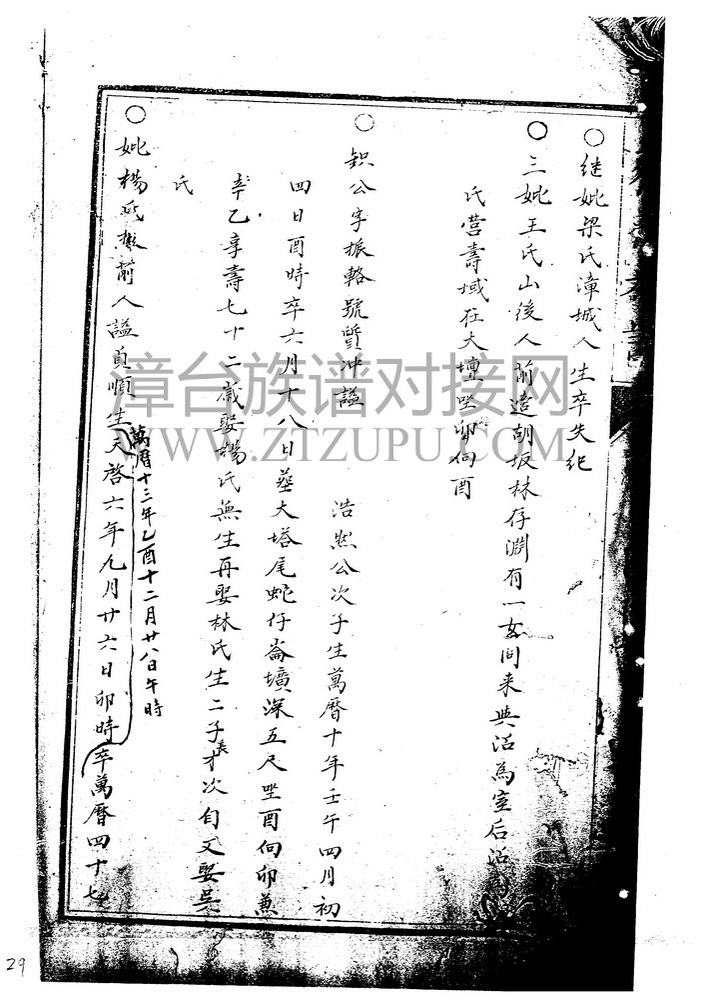 ○継妣梁氏漳城人生卒失紀
○三妣王氏山後人前適胡坂林存淵有一女同来與活為室后活
氏营壽域在大壇坐卯向酉
○釴公字振輅號質冲謚　浩然公次子生萬曆十年壬午四月初
四日酉時卒六月十八日葬大塔尾蛇仔崙壙深五尺坐酉向卯兼
辛乙享壽七十二歲娶楊氏無生再娶林氏生二子長才次自文娶吳
氏
○妣楊氏 前人謚貞順生天啓六年九月廿六日卯時卒萬曆四十七
萬曆十三年乙酉十二月廿八日午時
漳台族谱对接网
WWW.ZTZUPU.COM
29